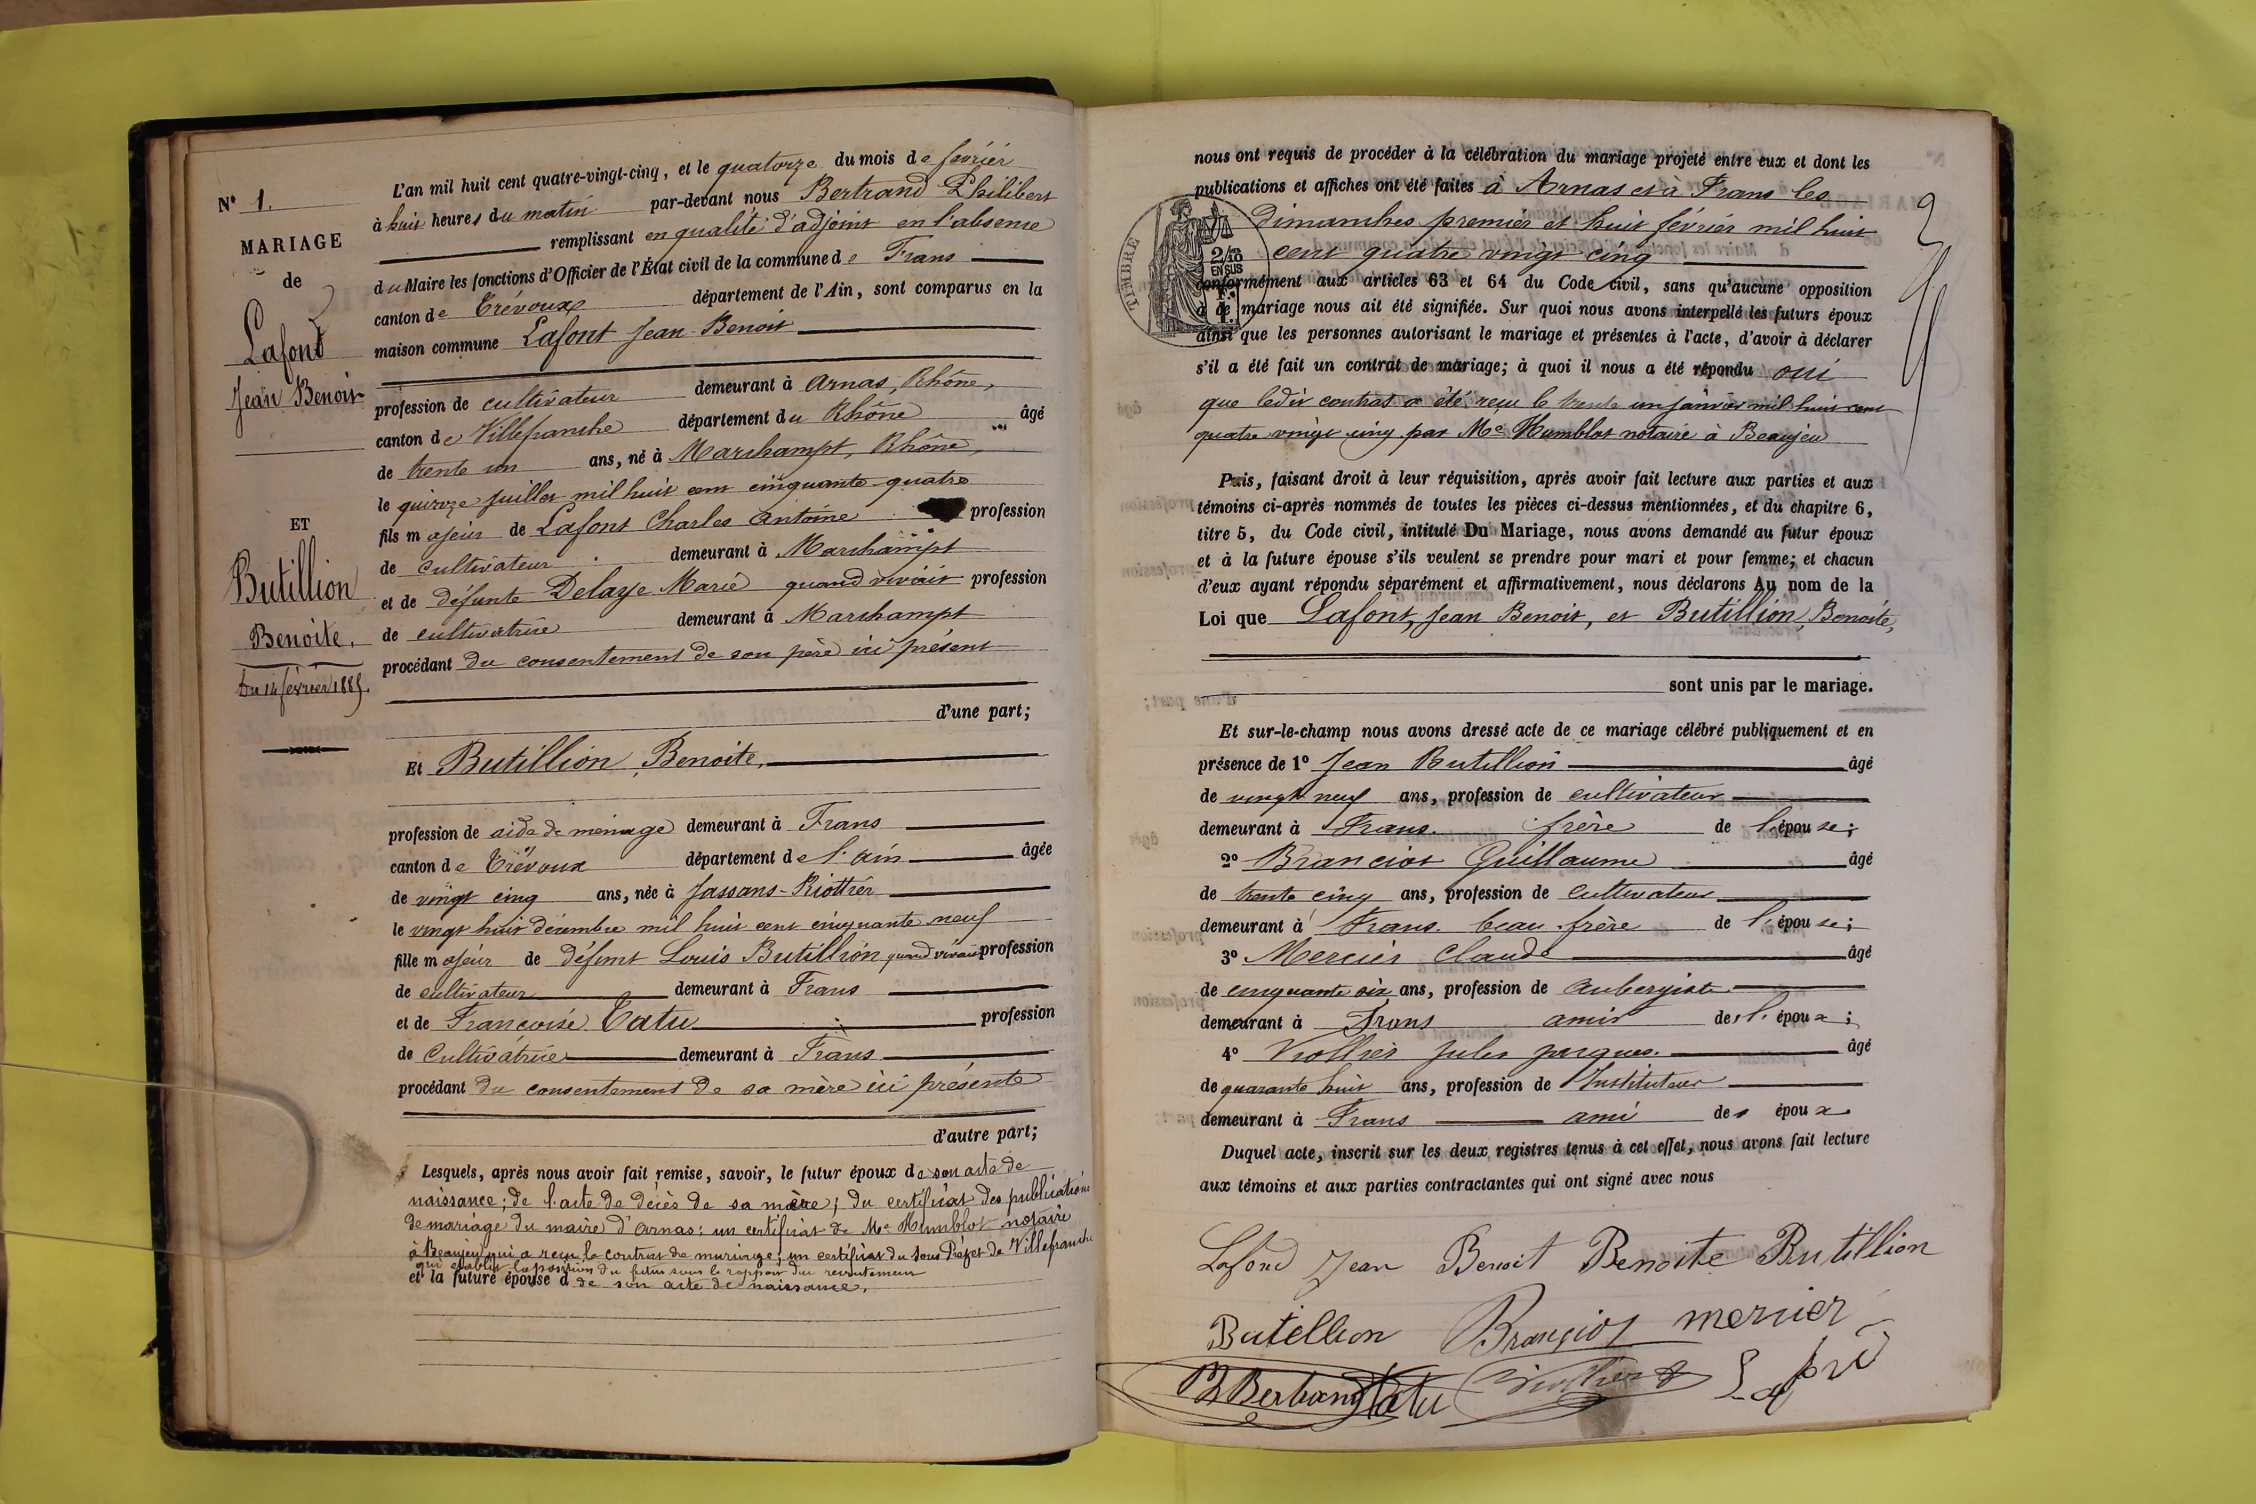 N° 1.
MARIAGE
de
Lafond
Jean Benoit
ET
Butillion
Benoite.
Du 14 février 1885.
L'an mil huit cent quatre-vingt-cinq, et le quatorze du mois de février
à huit heures du matin par-devant nous Bertrand Philibert
remplissant en qualité d'adjoint en l'absence
du Maire les fonctions d'Officier de l'État civil de la commune de Frans
canton de Trévoux département de l'Ain, sont comparus en la
maison commune Lafont Jean Benoit
profession de cultivateur demeurant à Arnas, Rhône,
canton de Villefranche département du Rhône âgé
de trente un ans, né à Marchampt, Rhône,
le quinze juillet mil huit cent cinquante quatre
fils majeur de Lafont Charles Antoine profession
de cultivateur demeurant à Marchampt
et de défunte Delaye Marie quand vivait profession
de cultivatrice demeurant à Marchampt
procédant du consentement de son père ici présent
d'une part;
Et Butillion Benoite,
profession de aide de ménage demeurant à Frans
canton de Trévoux département de l'Ain âgée
de vingt cinq ans, née à Jassans-Riottier
le vingt huit décembre mil huit cent cinquante neuf
fille majeur de défunt Louis Butillion quand vivait profession
de cultivateur demeurant à Frans
et de Francoise Tatu profession
de Cultivatrice demeurant à Frans
procédant du consentement de sa mère ici présente
d'autre part;
Lesquels, après nous avoir fait remise, savoir, le futur époux de son acte de
naissance; de l'acte de décès de sa mère; du certificat des publications
de mariage du maire d'Arnas; un certificat de Me Humblot notaire
à Beaujeu qui a reçu le contrat de mariage; un certificat du Sous Préfet de Villefranche
qui établit la position du futur sous le rapport du recrutement
et la future épouse d de son acte de naissance.
nous ont requis de procéder à la célébration du mariage projeté entre eux et dont les
publications et affiches ont été faites à Arnas et à Frans les
dimanches premier et huit février mil huit
cent quatre vingt cinq
TIMBRE
2/10
EN SUS
F.
1.
conformément aux articles 63 et 64 du Code civil, sans qu'aucune opposition
à ce mariage nous ait été signifiée. Sur quoi nous avons interpellé les futurs époux
ainsi que les personnes autorisant le mariage et présentes à l'acte, d'avoir à déclarer
s'il a été fait un contrat de mariage; à quoi il nous a été répondu oui
que ledit contrat a été reçu le trente un janvier mil huit cent
quatre vingt cinq par Me Humblot notaire à Beaujeu
Puis, faisant droit à leur réquisition, après avoir fait lecture aux parties et aux
témoins ci-après nommés de toutes les pièces ci-dessus mentionnées, et du chapitre 6,
titre 5, du Code civil, intitulé Du Mariage, nous avons demandé au futur époux
et à la future épouse s'ils veulent se prendre pour mari et pour femme; et chacun
d'eux ayant répondu séparément et affirmativement, nous déclarons Au nom de la
Loi que Lafont, Jean Benoit, et Butillion, Benoite,
sont unis par le mariage.
Et sur-le-champ nous avons dressé acte de ce mariage célébré publiquement et en
présence de 1° Jean Butillion âgé
de vingt neuf ans, profession de cultivateur
demeurant à Frans. frère de l'épouse;
2° Branciot Guillaume âgé
de trente cinq ans, profession de cultivateur
demeurant à Frans. beau-frère de l'épouse;
3° Mercier Claude âgé
de cinquante six ans, profession de aubergiste
demeurant à Frans amis de l'époux;
4° Viollier Jules Jacques. âgé
de quarante huit ans, profession de Instituteur
demeurant à Frans ami des époux
Duquel acte, inscrit sur les deux registres tenus à cet effet, nous avons fait lecture
aux témoins et aux parties contractantes qui ont signé avec nous
Lafond Jean Benoit Benoite Butillion
Butillion Branciot mercier
Bertrand Tatu Viollier Lafond